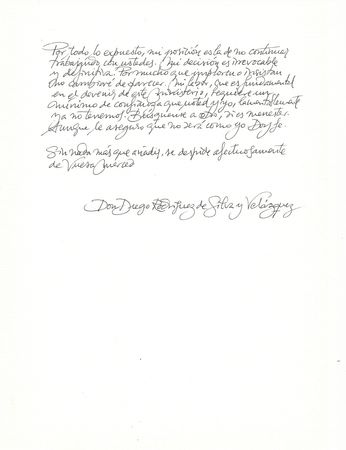 Por todo lo expuesto, mi posición es la de no continuar
trabajando con ustedes. Mi decisión es irrevocable
y definitiva. Por mucho que imploren o insistan
no cambiaré de parecer. Mi labor, que es fundamental
en el devenir de este Ministerio, requiere un
mínimo de confianza que usted y yo, lamentablemente
ya no tenemos. Búsquense a otro, si es menester.
Aunque, le aseguro que no será como yo. Doy fe.
Sin nada más que añadir, se despide afectuosamente
de Vuesa merced
Don Diego Rodríguez de Silva y Velázquez